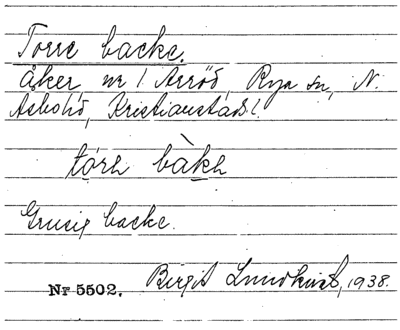 Torre backe.
Åker nr 1 Arröd, Rya sn, N.
Åsbo hd, Kristianstads l.
tórh bàkh
Grusig backe.
Nr 5502. Birgit Lundkvist, 1938.